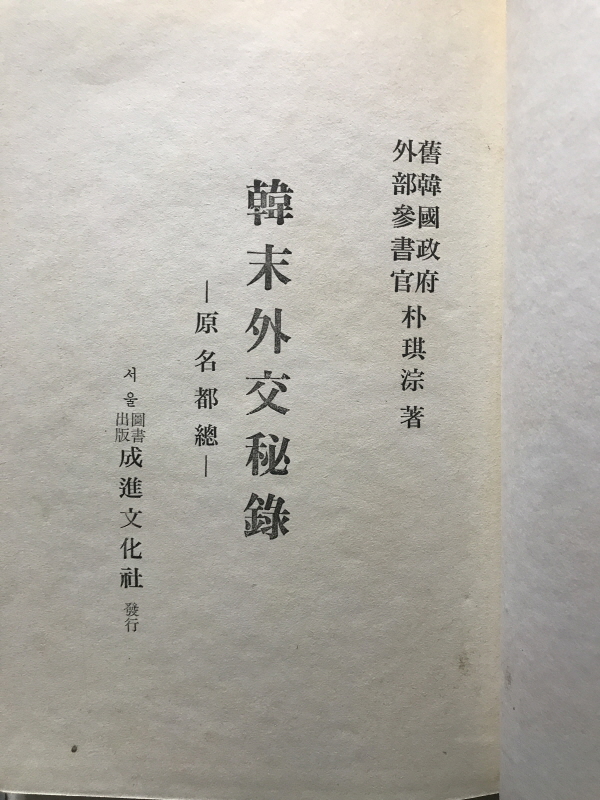 舊韓國政府
外部參書官 朴琪淙 著
韓末外交秘錄
—原名都總—
서울 圖書出版 成進文化社 發行